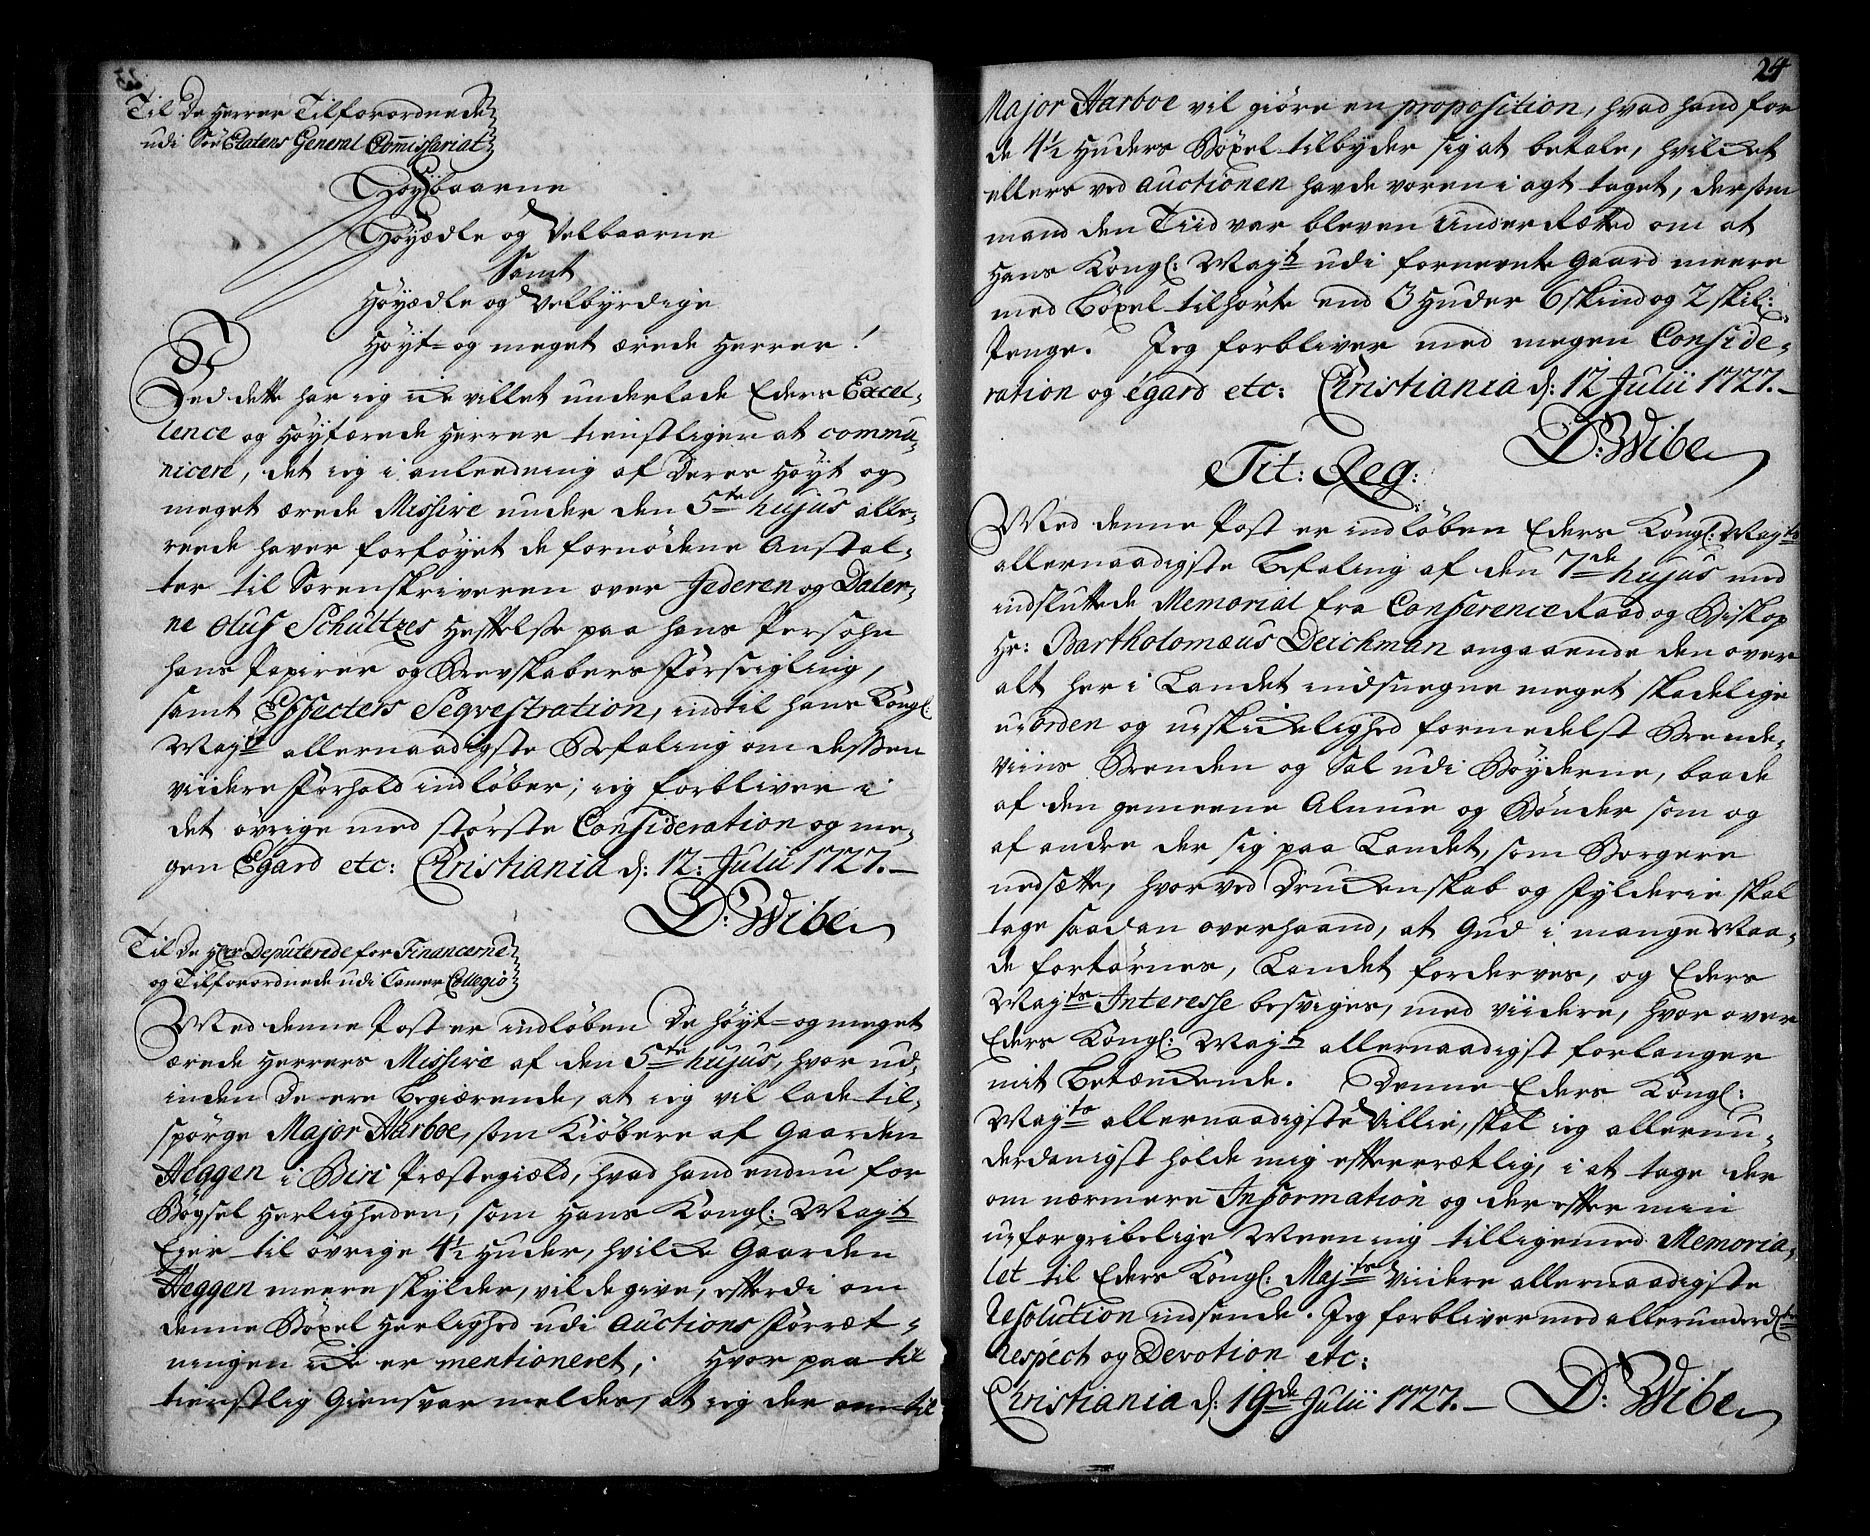 23
Til De Herrer Tilforordnede
udi Söe Etatens General Commissariat
Höybaarne
Höyædle og Velbaarne
Samt
Höyædle og Velbyrdige
Höyt- og meget ærede Herrer!
Ved dette har ieg icke villet underlade Eders Excel-
lence og Höytærede Herrer tienstligen at commu-
nicere, det ieg i anleedning af Deres Höyt og
meget ærede Missive under den 5te hujus alle-
reede haver forföyet de fornödene Anstal-
ter til Sorenskriveren over Jederen og Daler-
ne Oluf Schultzes Heftelse paa hans Persohn
hans Papirer og Brevskabers Forseigling,
samt Effecters Seqvestration, indtil Hans Kongl:
Mayts allernaadigste Befaling om dessen
viidere Forhold indlöber; ieg forbliver i
det övrige med störste Consideration og me-
gen Egard etc: Christiania d: 12: Julii 1727.
D: Wibe
Til De Herr Deputerede for Financerne
og Tilforordnede udi Camer Collegio
Med denne Post er indlöben De Höyt- og meget
ærede Herrers Missive af den 5te hujus, hvor ud-
inden De ere begiærende, at ieg vil lade til-
spörge Major Aarboe, som Kiöbere af Gaarden
Heggen i Biri Præstegield, hvad hand endnu for
Bögsel Herligheden, som Hans Kongl: Mayt
Eyer til övrige 4½ Huder, hvilcke Gaarden
Heggen meere skylder, vilde give, efterdi om
denne Böxel Herlighed udi Auctions Forret-
ningen icke er mentioneret; Hvor paa til
tienstlig Giensvar melder, at ieg der om til
24
Major Aarboe vil giöre en proposition, hvad hand for
de 4½ Huders Böxel tilbyder sig at betale, hvilcket
ellers ved auctionen havde voren i agt taget, dersom
mand den Tiid var bleven Underrætted om at
Hans Kongl: Mayts udi fornevnte Gaard meere
med Böxel tilhörte end 3 Huder 6 skind og 2 skil:
Penge. Jeg forbliver med megen Conside-
ration og égard etc: Christiania d: 12 Julii 1727.
D: Wibe
Tit: Reg:
Med denne Post er indlöben Eders Kongl: Mayts
allernaadigste Befaling af den 7de hujus med
indsluttede Memorial fra Conference Raad og Biskop
Hr: Bartholomæus Deichman angaaende den over
alt her i Landet indsnegne meget skadelige
uorden og uskickelighed formedelst Brende-
viins Brenden og Sal udi Böyderne, baade
af den gemeene Almue og Bönder som og
af andre der sig paa Landet, som Borgere
nedsætte, hvorved Druckenskab og Fylderie skal
tage saadan overhaand, at Gud i mange Maa-
de fortörnes, Landet forderves, og Eders
Mayts Interesse besviges, med viidere, hvor over
Eders Kongl: Mayts allernaadigst forlanger
mit Betænckende. Denne Eders Kongl:
Mayts allernaadigste Villie, skal ieg allerun-
derdanigst holde mig efterrætlig, i at tage der
om nærmere Information og der efter min
uforgribelige Meening tilligemed Memoria-
let til Eders Kongl: Majts viidere allernaadigste
Resolution indsende. Jeg forbliver med allerunderdste
Respect og Devotion etc:
Christiania d: 19de Julii 1727.
D: Wibe